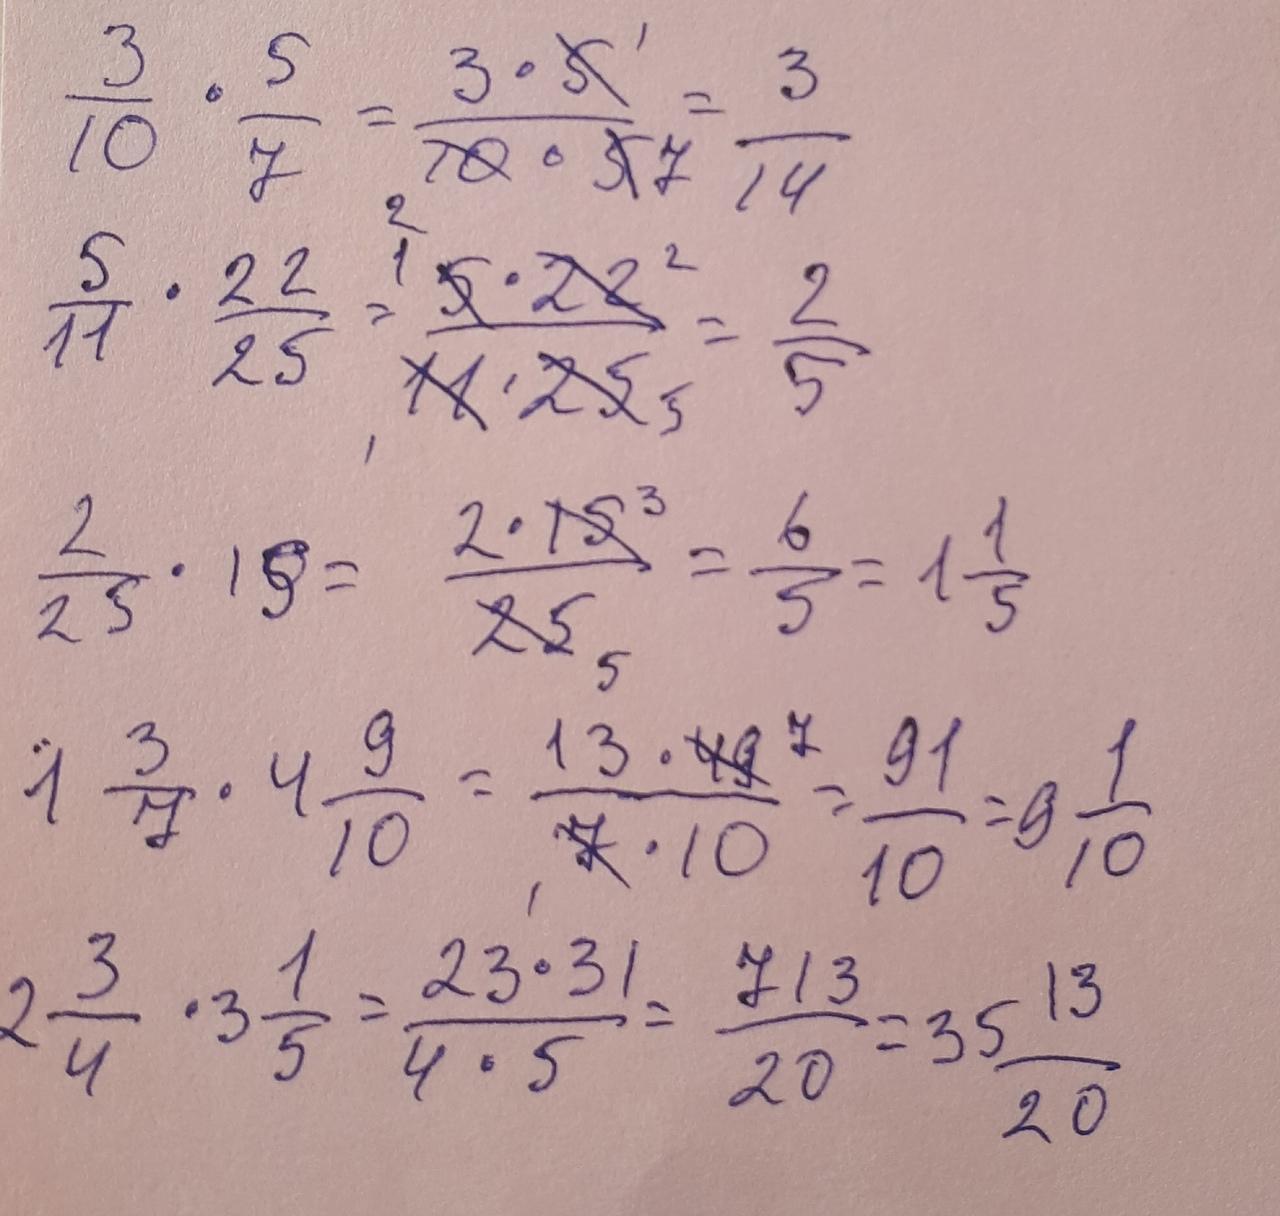 3/10 · 5/7 = 3 · 5 1 / 10 2 · 5 7 = 3/14
5/11 · 22/25 = 1 5 · 22 2 / 11 1 · 25 5 = 2/5
2/25 · 15 = 2 · 15 3 / 25 5 = 6/5 = 1 1/5
1 3/7 · 4 9/10 = 13 · 49 7 / 7 1 · 10 = 91/10 = 9 1/10
2 3/4 · 3 1/5 = 23 · 31 / 4 · 5 = 713/20 = 35 13/20